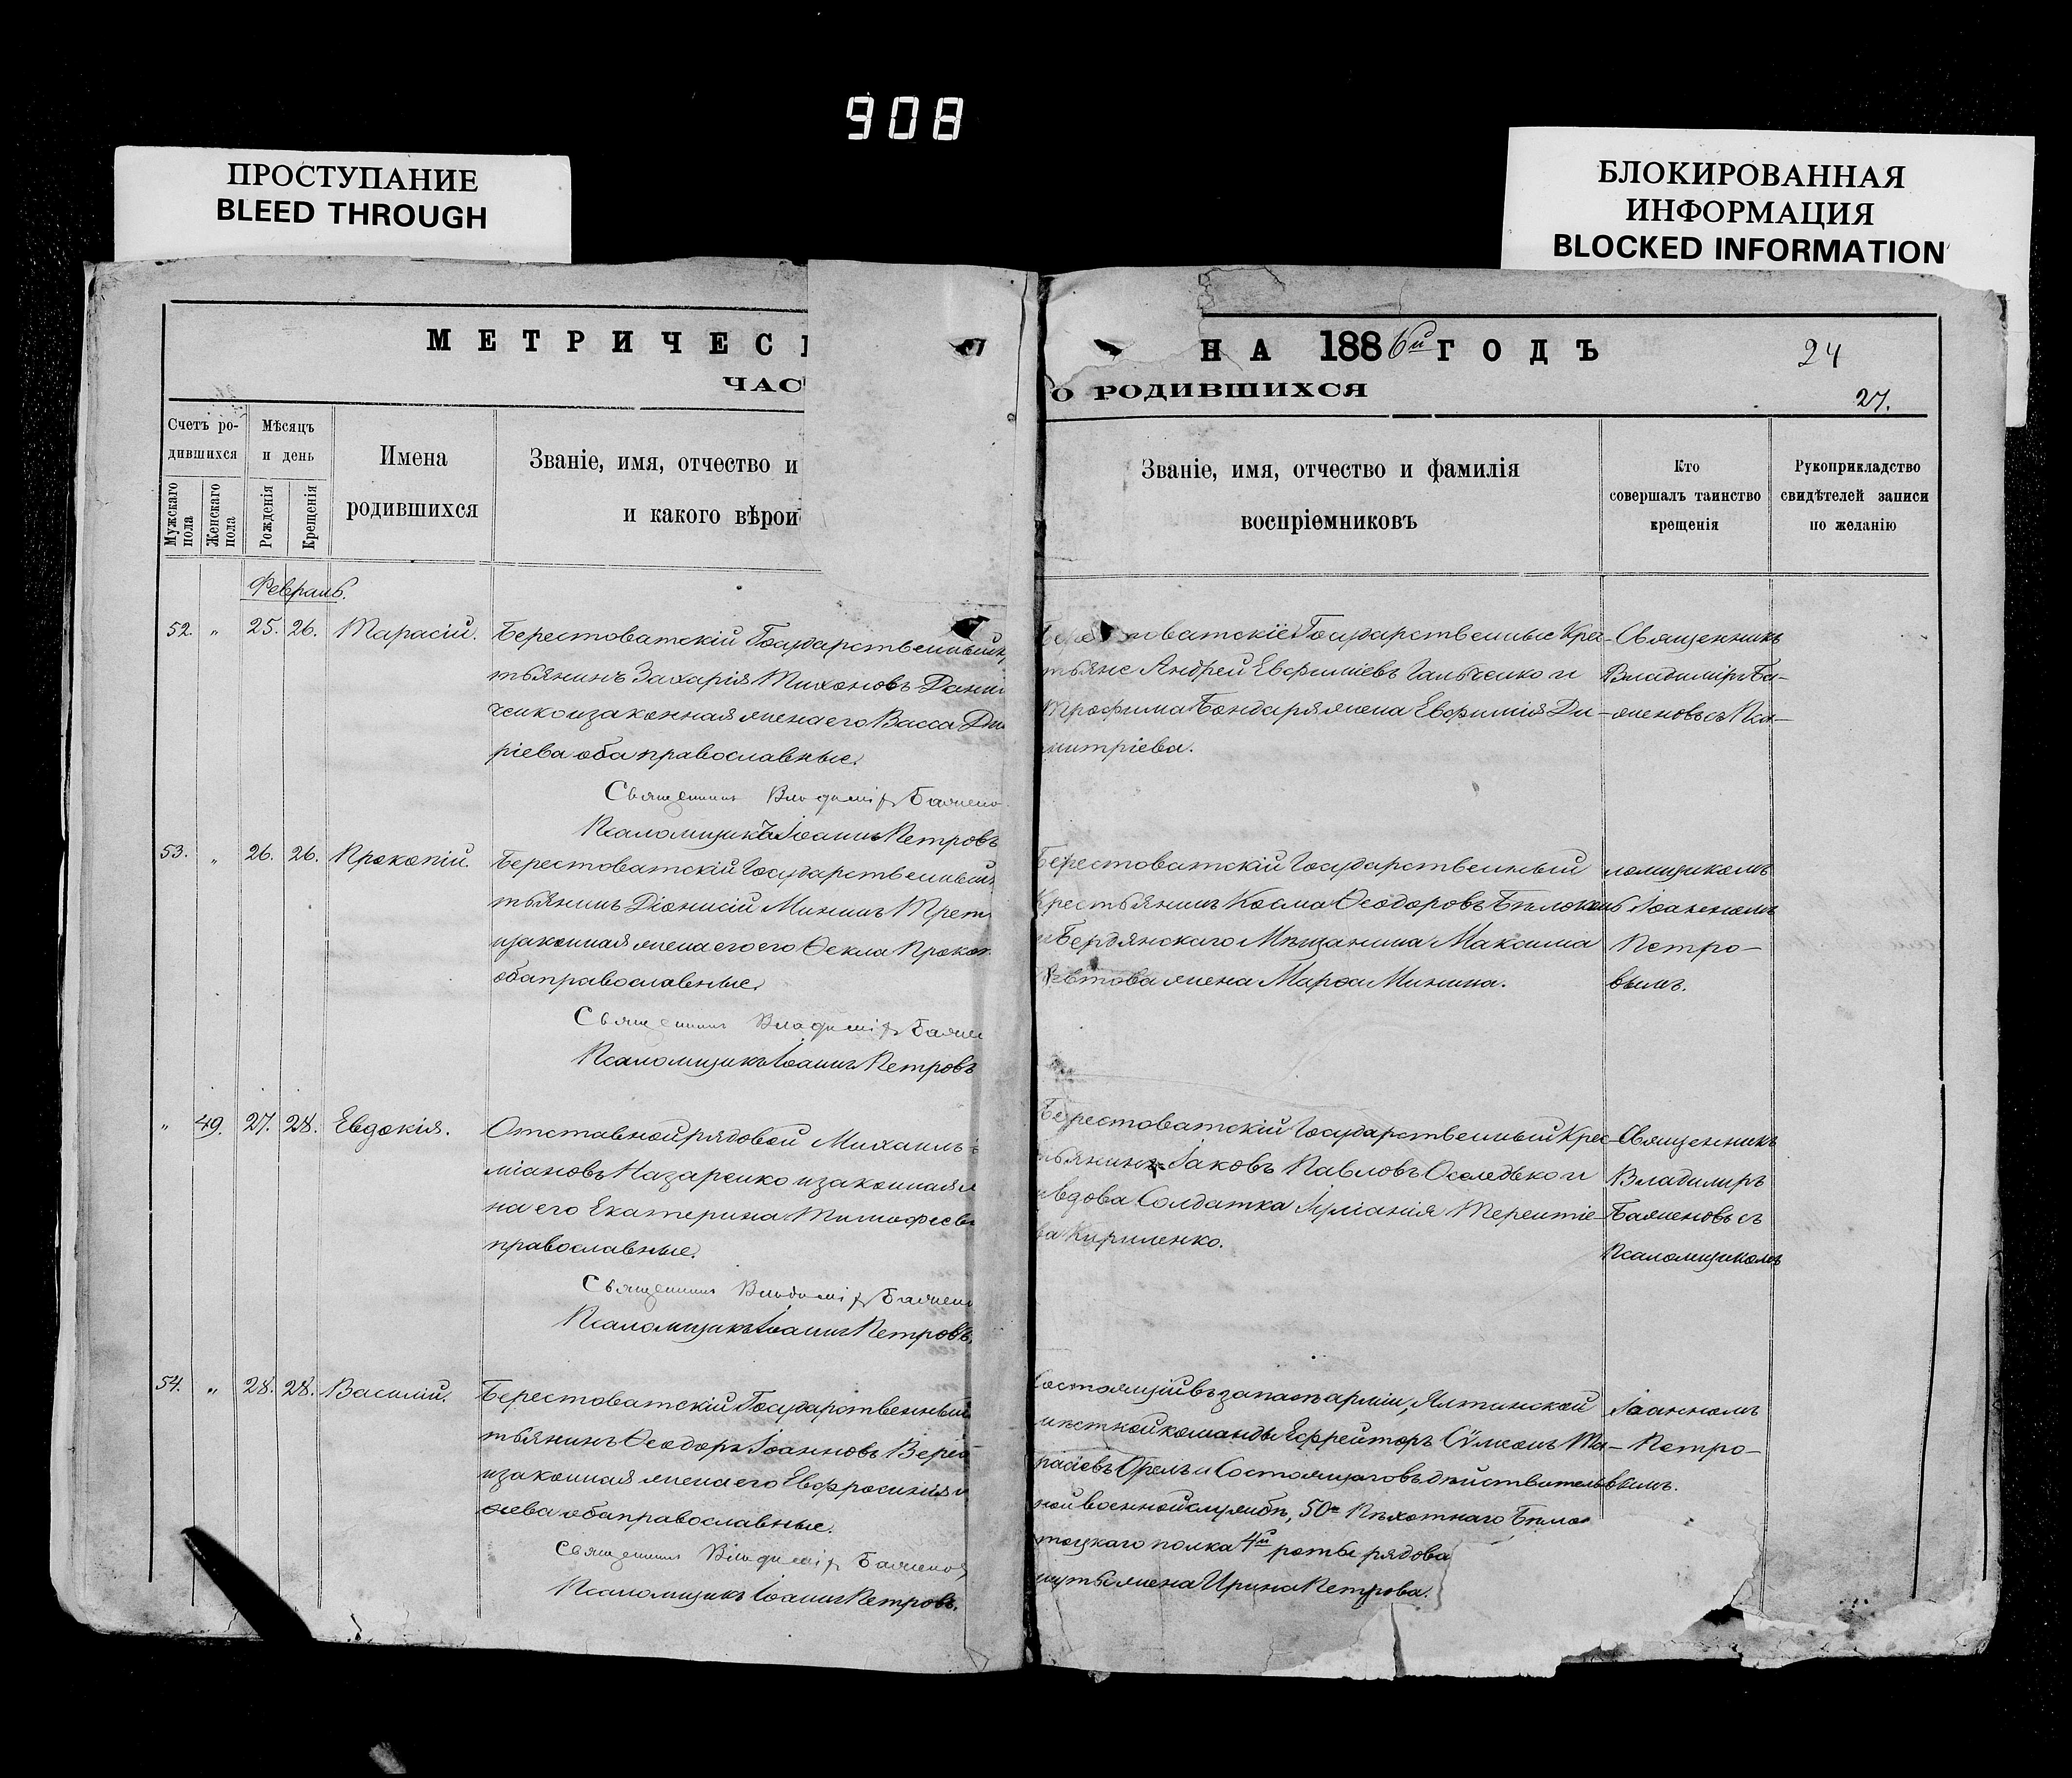 908
ПРОСТУПАНИЕ
BLEED THROUGH
БЛОКИРОВАННАЯ
ИНФОРМАЦИЯ
BLOCKED INFORMATION
МЕТРИЧЕС
НА 1886й ГОДЪ
24
ЧАС
О РОДИВШИХСЯ
27.
Счетъ ро-
дившихся
Мужскаго пола
Женскаго пола
Мѣсяцъ
и день
Рожденія
Крещенія
Имена
родившихся
Званіе, имя, отчество и
и какого вѣрои
Званіе, имя, отчество и фамилія
воспріемниковъ
Кто
совершалъ таинство
крещенія
Рукоприкладство
свидѣтелей записи
по желанію
Февраль.
52. " 25. 26. Тарасій.
Берестоватскій Государственный
тьянинъ Захарія Тихоновъ Данил
ченко и законная жена его Васса Дим
ріева оба православные.
Священникъ Владиміръ Баженов
Псаломщикъ Іоаннъ Петровъ
Берестоватскіе Государственные Крес-
тьяне Андрей Евфиміевъ Гальченко и
Трофима Бондаря жена Евфимія Ди-
митріева.
Священникъ
Владиміръ Ба-
женовъ съ Пса-
53. " 26. 26. Прокопій.
Берестоватскій Государственный
тьянинъ Діонисій Мининъ Трет
и законная жена его его Ѳекла Прокоп
оба православные.
Священникъ Владиміръ Бажен
Псаломщикъ Іоаннъ Петровъ
Берестоватскій Государственный
Крестьянинъ Косма Ѳеодоровъ
и Бердянскаго Мѣщанина Максима
жена Марѳа Минина.
ломщикомъ
Іоанномъ
Петро-
вымъ.
" 49. 27. 28. Евдокія.
Отставной рядовой Михаилъ
міановъ Назаренко и законная ж
на его Екатерина Тимофеева
православные.
Священникъ Владиміръ Бажено
Псаломщикъ Іоаннъ Петровъ.
Берестоватскій Государственный Крес-
тьянинъ Іаковъ Павловъ Оселедько и
вдова Солдатка Іуліанія Терентіе-
ва Кириленко.
Священникъ
Владимиръ
Баженовъ съ
Псаломщикомъ
54. " 28. 28. Василій.
Берестоватскій Государственный
тьянинъ Ѳеодоръ Іоанновъ
и законная жена его Евфросинія
ѳеева оба православные.
Священникъ Владиміръ Баженов
Псаломщикъ Іоаннъ Петровъ.
Состоящій въ запасѣ арміи, Ялтинской
мѣстной команды Ефрейторъ Сѵмеонъ Та-
расіевъ Орелъ и Состоящаго въ дѣйствитель
ной военной службѣ, 50го Пѣхотнаго Бѣлос
тоцкаго полка 4й роты рядова
жена Ирина Петрова.
Іоанномъ
Петро-
вымъ.